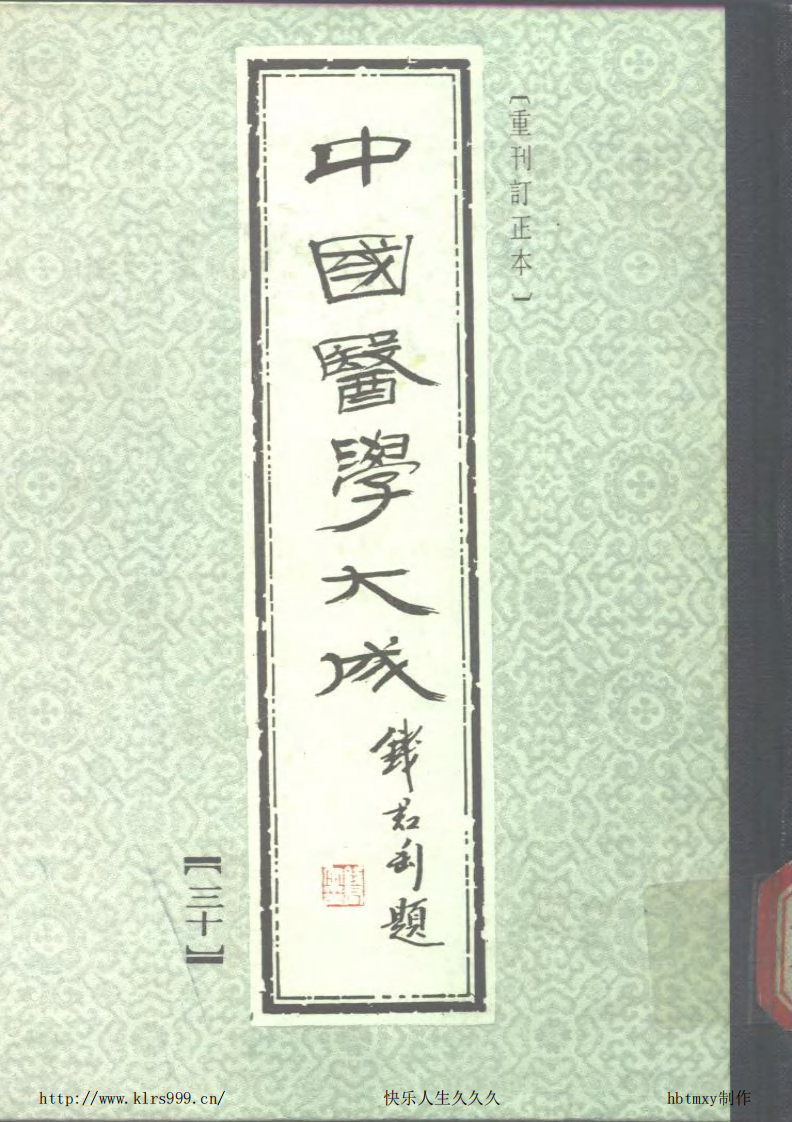 【重刊訂正本】
中國醫學大成
錢君匋題
【三十】
http://www.klrs999.cn/ 快乐人生久久久 hbtmxy制作